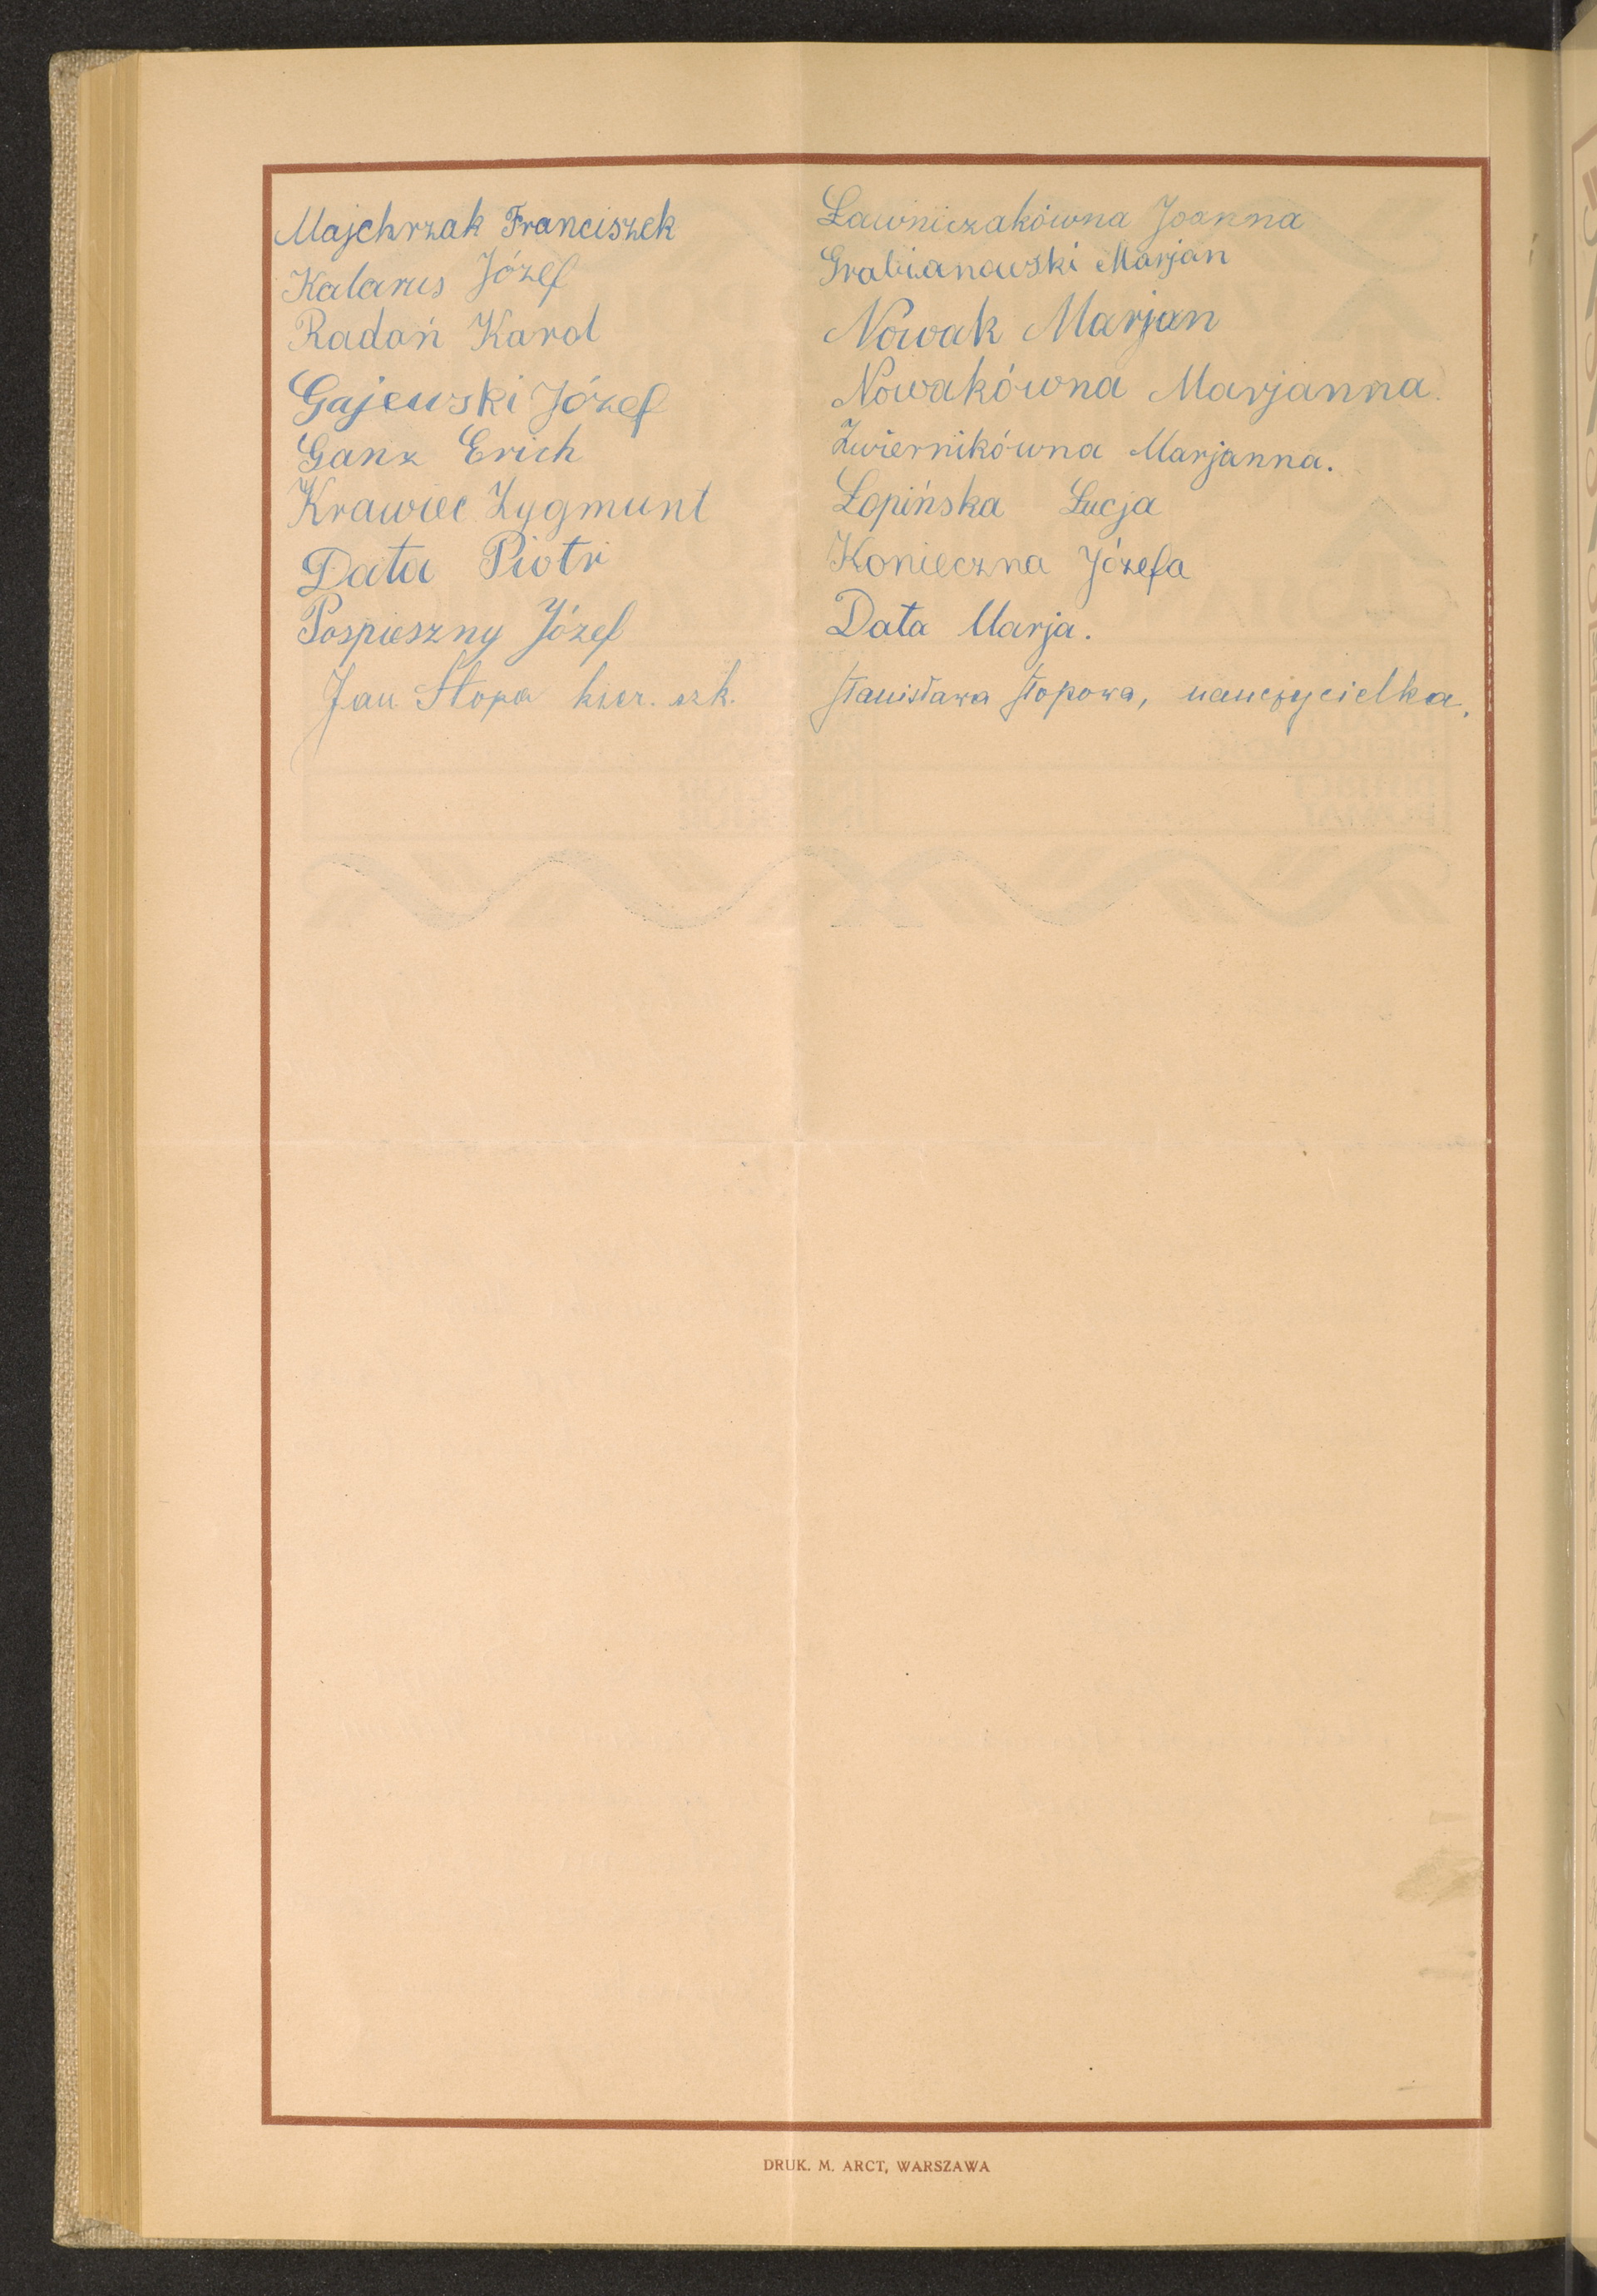 Majchrzak Franciszek
Kalarus Józef
Radoń Karol
Gajewski Józef
Ganz Erich
Krawiec Zygmunt
Data Piotr
Pospieszny Józef
Jan Stopa kier. szk.
Ławniczakówna Joanna
Grabianowski Marjan
Nowak Marjan
Nowakówna Marjanna.
Zwiernikówna Marjanna.
Łopińska Łucja
Konieczna Józefa
Data Marja.
Stanisława Stopowa, nauczycielka.
DRUK. M. ARCT, WARSZAWA